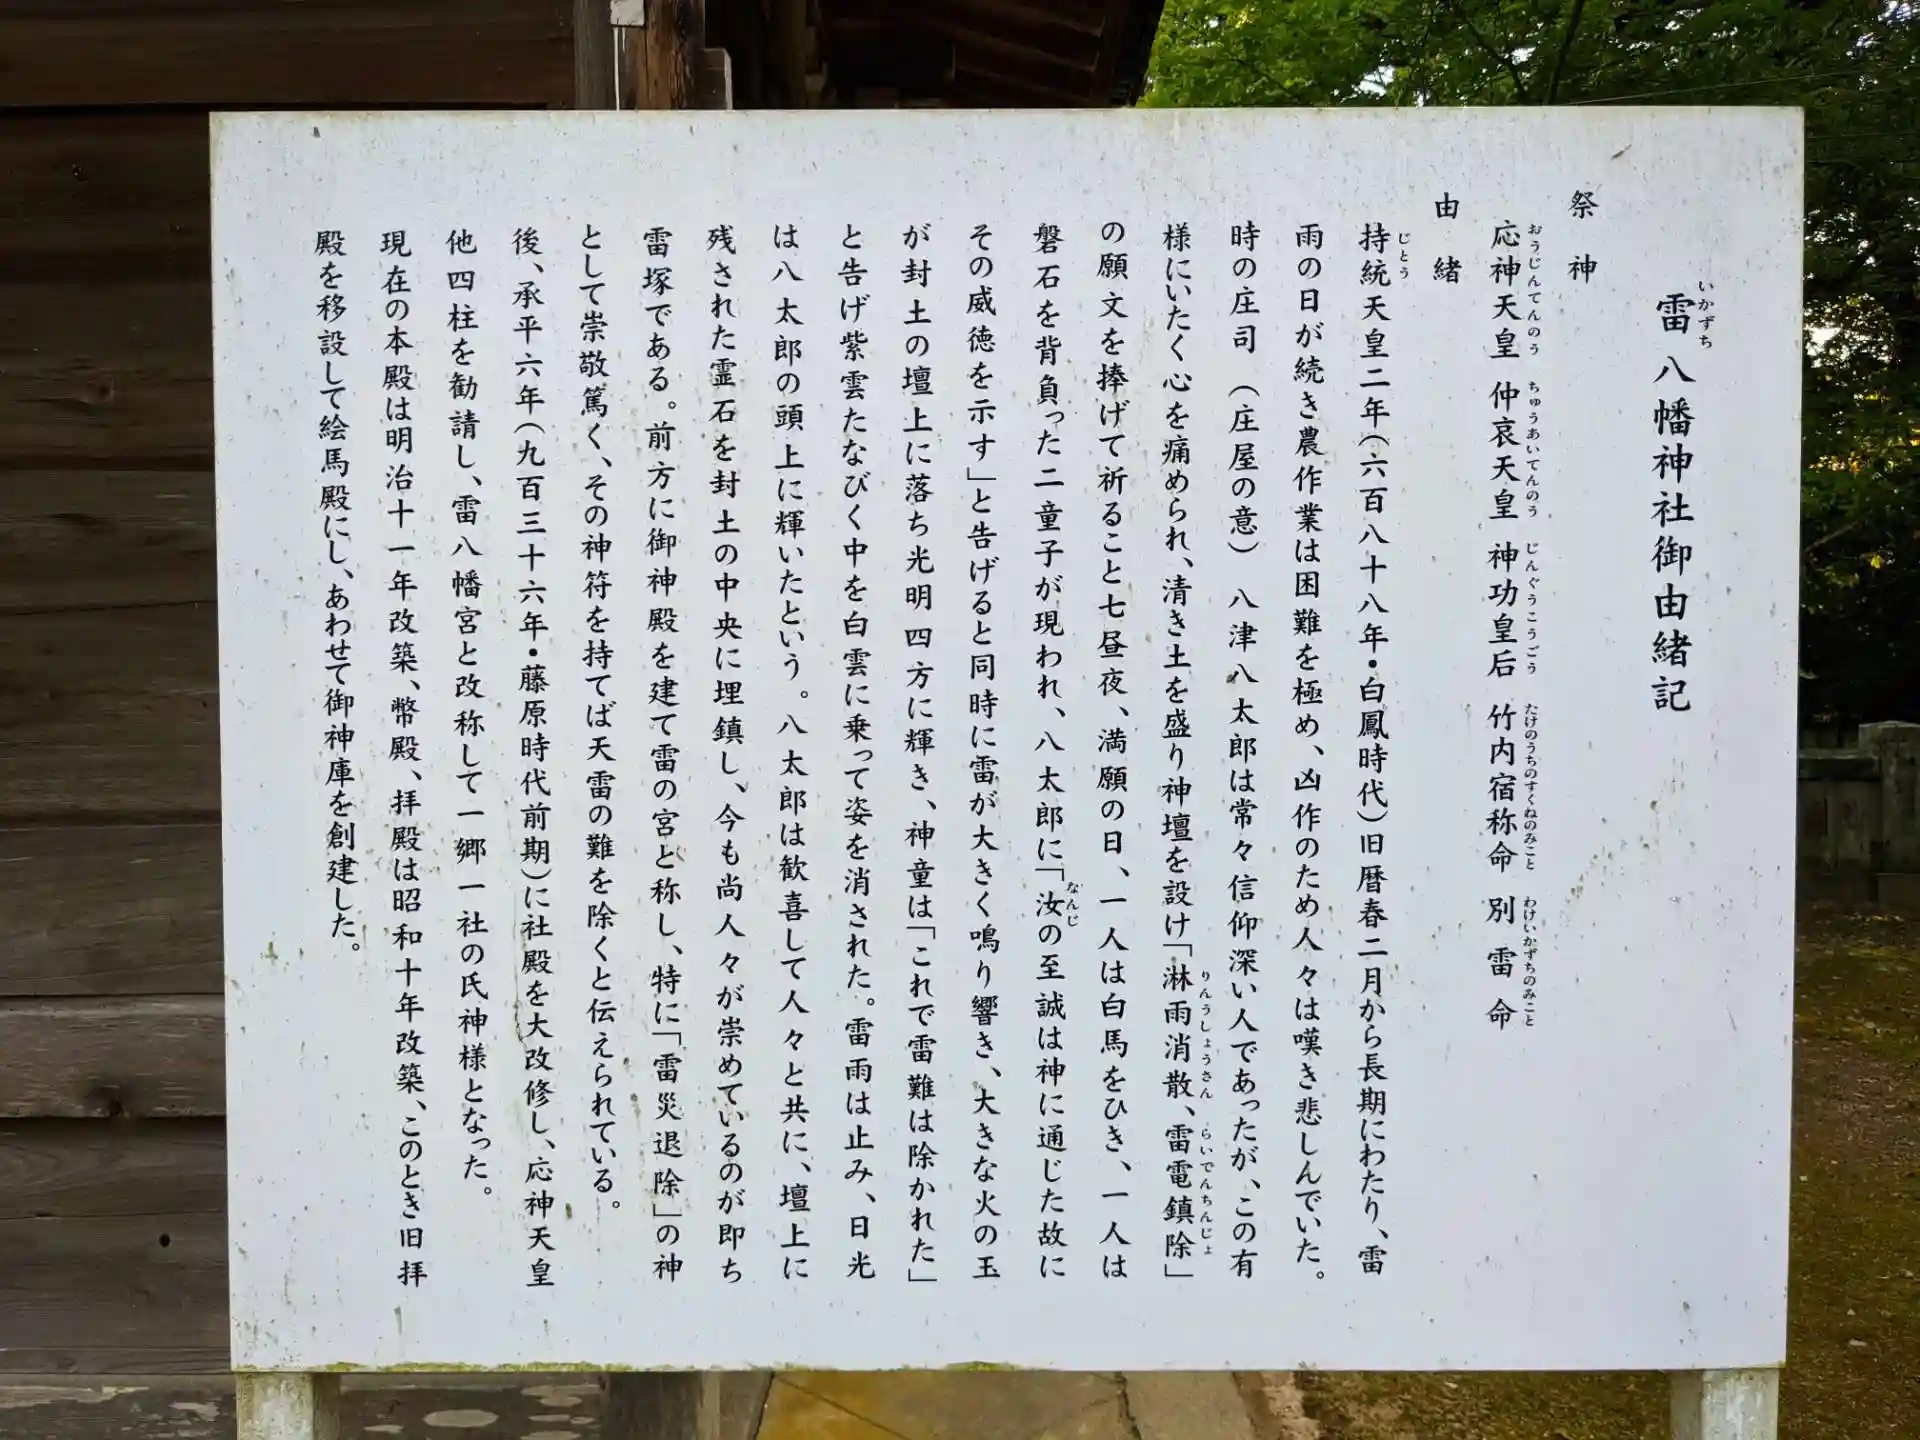 雷八幡神社御由緒記
いかずち
祭神
応神天皇 仲哀天皇 神功皇后 竹内宿称命 別雷命
おうじんてんのう ちゅうあいてんのう じんぐうこうごう たけのうちのすくねのみこと わけいかずちのみこと
由緒
持統天皇二年(六百八十八年・白鳳時代)旧暦春二月から長期にわたり、雷
じとう
雨の日が続き農作業は困難を極め、凶作のため人々は嘆き悲しんでいた。
時の庄司(庄屋の意)八津八太郎は常々信仰深い人であったが、この有
様にいたく心を痛められ、清き土を盛り神壇を設け「淋雨消散、雷電鎮除」
りんうしょうさん らいでんちんじょ
の願文を捧げて祈ること七昼夜、満願の日、一人は白馬をひき、一人は
磐石を背負った二童子が現われ、八太郎に「汝の至誠は神に通じた故に
なんじ
その威徳を示す」と告げると同時に雷が大きく鳴り響き、大きな火の玉
が封土の壇上に落ち光明四方に輝き、神童は「これで雷難は除かれた」
と告げ紫雲たなびく中を白雲に乗って姿を消された。雷雨は止み、日光
は八太郎の頭上に輝いたという。八太郎は歓喜して人々と共に、壇上に
残された霊石を封土の中央に埋鎮し、今も尚人々が崇めているのが即ち
雷塚である。前方に御神殿を建て雷の宮と称し、特に「雷災退除」の神
として崇敬篤く、その神符を持てば天雷の難を除くと伝えられている。
後、承平六年(九百三十六年・藤原時代前期)に社殿を大改修し、応神天皇
他四柱を勧請し、雷八幡宮と改称して一郷一社の氏神様となった。
現在の本殿は明治十一年改築、幣殿、拝殿は昭和十年改築、このとき旧拝
殿を移設して絵馬殿にし、あわせて御神庫を創建した。